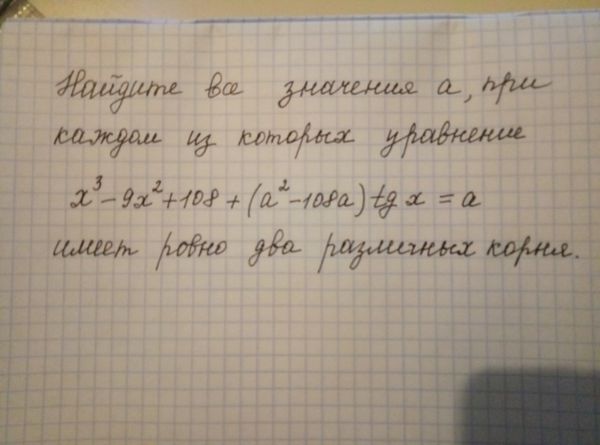 Найдите все значения a, при
каждом из которых уравнение
x³-9x²+108+(a²-108a) tg x = a
имеет ровно два различных корня.